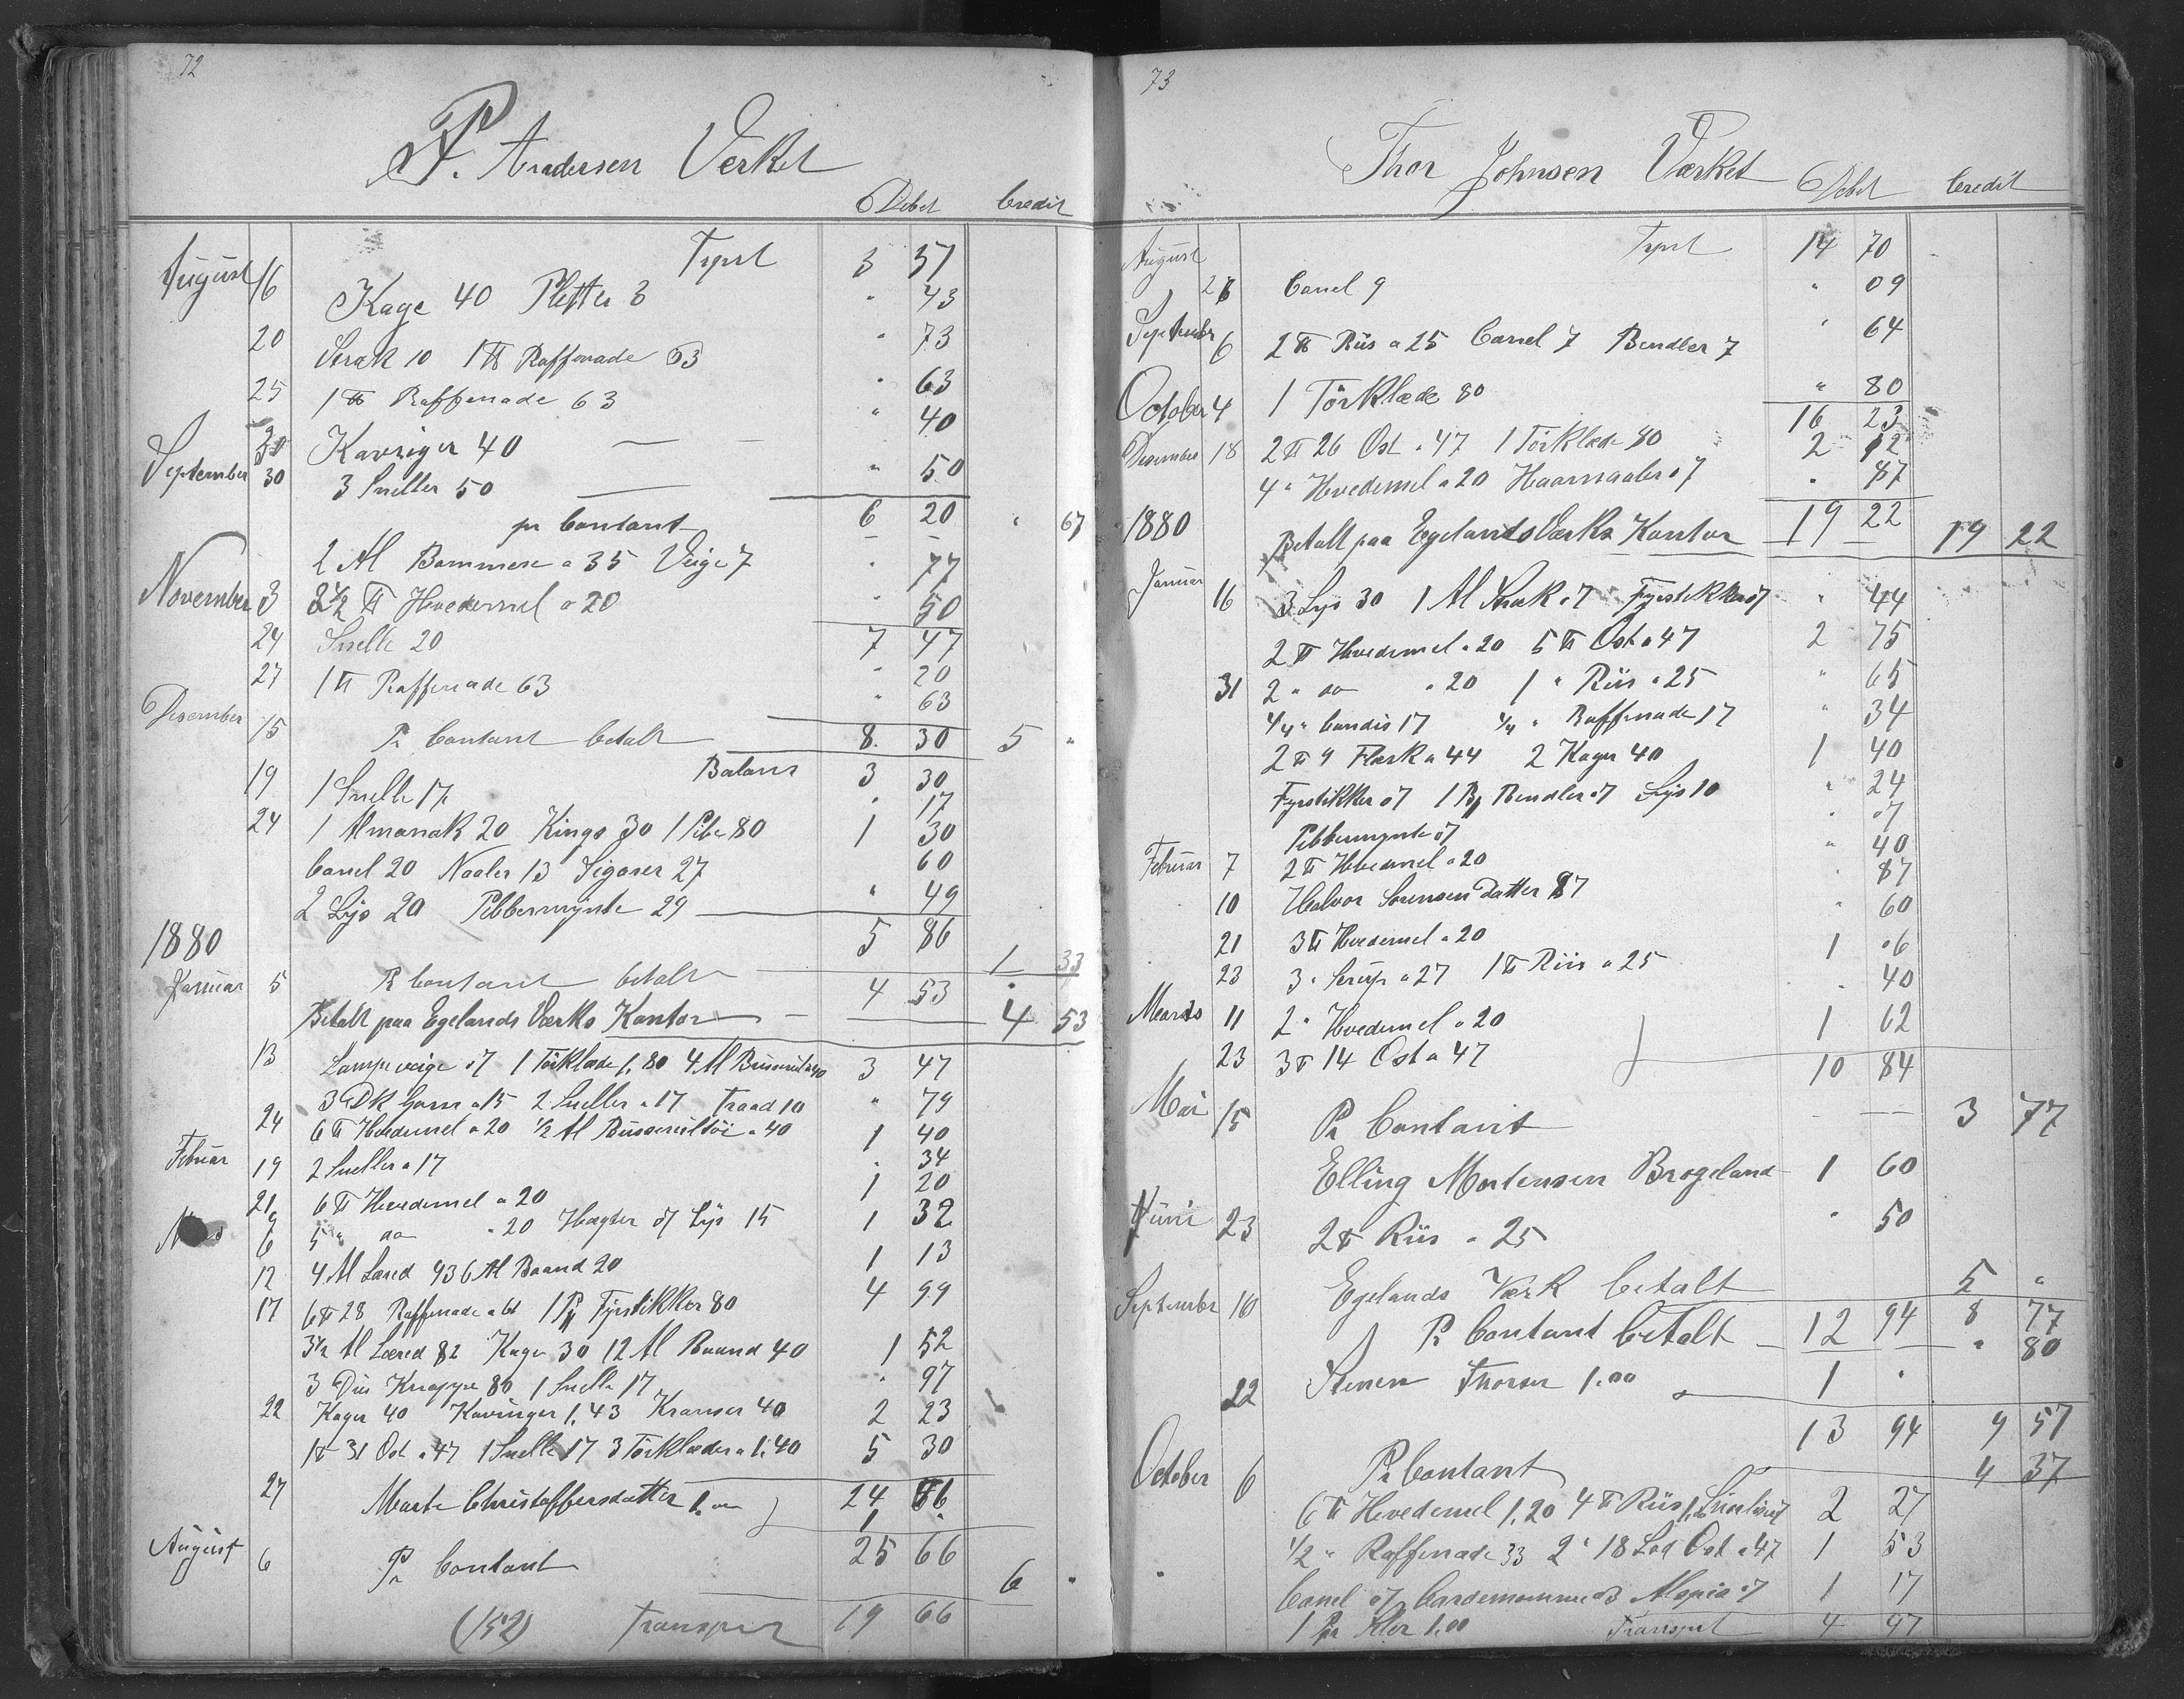 72
P. Andersen Værket
Debet Credit
Trpst 3 37
August 16 Kage 40 Pletter 3 " 43
20 Strak 10 1 ℔ Raffenade 63 " 73
25 1 ℔ Raffenade 63 " 63
30 Kavriger 40 " 40
September 30 3 Sneller 50 " 50
pr Contant 6 20 " 67
2 Al Bommese a 35 Veige 7 " 77
November 3 2½ ℔ Hvedemel a 20 " 50
7 47
24 Snelle 20 " 20
27 1 ℔ Raffenade 63 " 63
Desember 15 Pr Contant betalt 8 30 5 "
Balans 3 30
19 1 Snelle 17 " 17
24 1 Almanak 20 Kings 30 1 Pibe 80 1 30
Canel 20 Naaler 13 Sigarer 27 60
2 Lys 20 Pebbermynte 29 " 49
5 86
1880
Januar 5 Pr Contant betalt 1 33
4 53
Betalt paa Egelands Værks Kontor 4 53
13 Lampeveige 07 1 Törklæde 1,80 4 Al a 40 3 47
3 Dk Garn a 15 2 Sneller a 17 Traad 10 " 79
24 6 ℔ Hvedemel a 20 ½ Al a 40 1 40
Februar 19 2 Sneller a 17 " 34
21 6 ℔ Hvedemel a 20 1 20
6 5 " do " 20 Hægter 07 Lys 15 1 32
12 4 Al Læred 93 6 Al Baand 20 1 13
17 6 ℔ 28 Raffenade a 61 1 Pk Fyrstikker 80 4 99
3½ Al Læred 82 Kager 30 12 Al Baand 40 1 52
3 Dus Knappe 80 1 Snelle 17 " 97
22 Kager 40 Kavringer 1,43 Kranser 40 2 23
1 ℔ 31 Ost a 47 1 Snelle 17 3 Törklæder a 1,40 5 30
24 66
27 Marte Christoffersdatter 1.00 1 "
25 66
August 6 Pr Contant 6 "
(152) Transport 19 66
73
Thor Johnsen Værket
Debet Credit
August Trpst 14 70
28 Canel 9 " 09
September 6 2 ℔ Riis a 25 Canel 7 Bendler 7 " 64
October 4 1 Törklæde 80 " 80
16 23
Desember 18 2 ℔ 26 Ost a 47 1 Törklæde 80 2 12
4 " Hvedemel a 20 Haarnaaler 07 " 87
1880 19 22
Betalt paa Egelands Værks Kontor 19 22
Januar 16 3 Lys 30 1 Al Strak 07 Fyrstikker 07 " 44
2 ℔ Hvedemel a 20 5 ℔ Ost a 47 2 75
31 2 " do " 20 1 " Riis a 25 " 65
¼ " Candis 17 ¼ " Raffenade 17 " 34
2 ℔ 9 Flesk a 44 2 Kager 40 1 40
Fyrstikker 07 1 Bendler 07 Lys 10 " 24
Pebbermynte 07 " 07
Februar 7 2 ℔ Hvedemel a 20 " 40
10 Halvor Sorensen Datter 87 " 87
21 3 ℔ Hvedemel a 20 " 60
23 3 " Sirup a 27 1 ℔ Riis a 25 1 06
Marts 11 2 " Hvedemel a 20 " 40
23 3 ℔ 14 Ost a 47 1 62
10 84
Mai 15 Pr Contant 3 77
Elling Mortensen Brogeland 1 60
Juni 23 2 ℔ Riis a 25 " 50
Egelands Værk betalt 5 "
September 10 Pr Contant betalt 12 94 8 77
" 80
22 Stenen Thorsen 1.00 1 "
13 94 9 57
October 6 Pr Contant 4 37
6 ℔ Hvedemel 1,20 4 ℔ Riis 2 27
½ " Raffenade 33 2 " 18 Lod Ost a 47 1 53
Canel 07 Cardemomme 03 07 1 17
1 Pr Klor 1.00
Transport 4 97